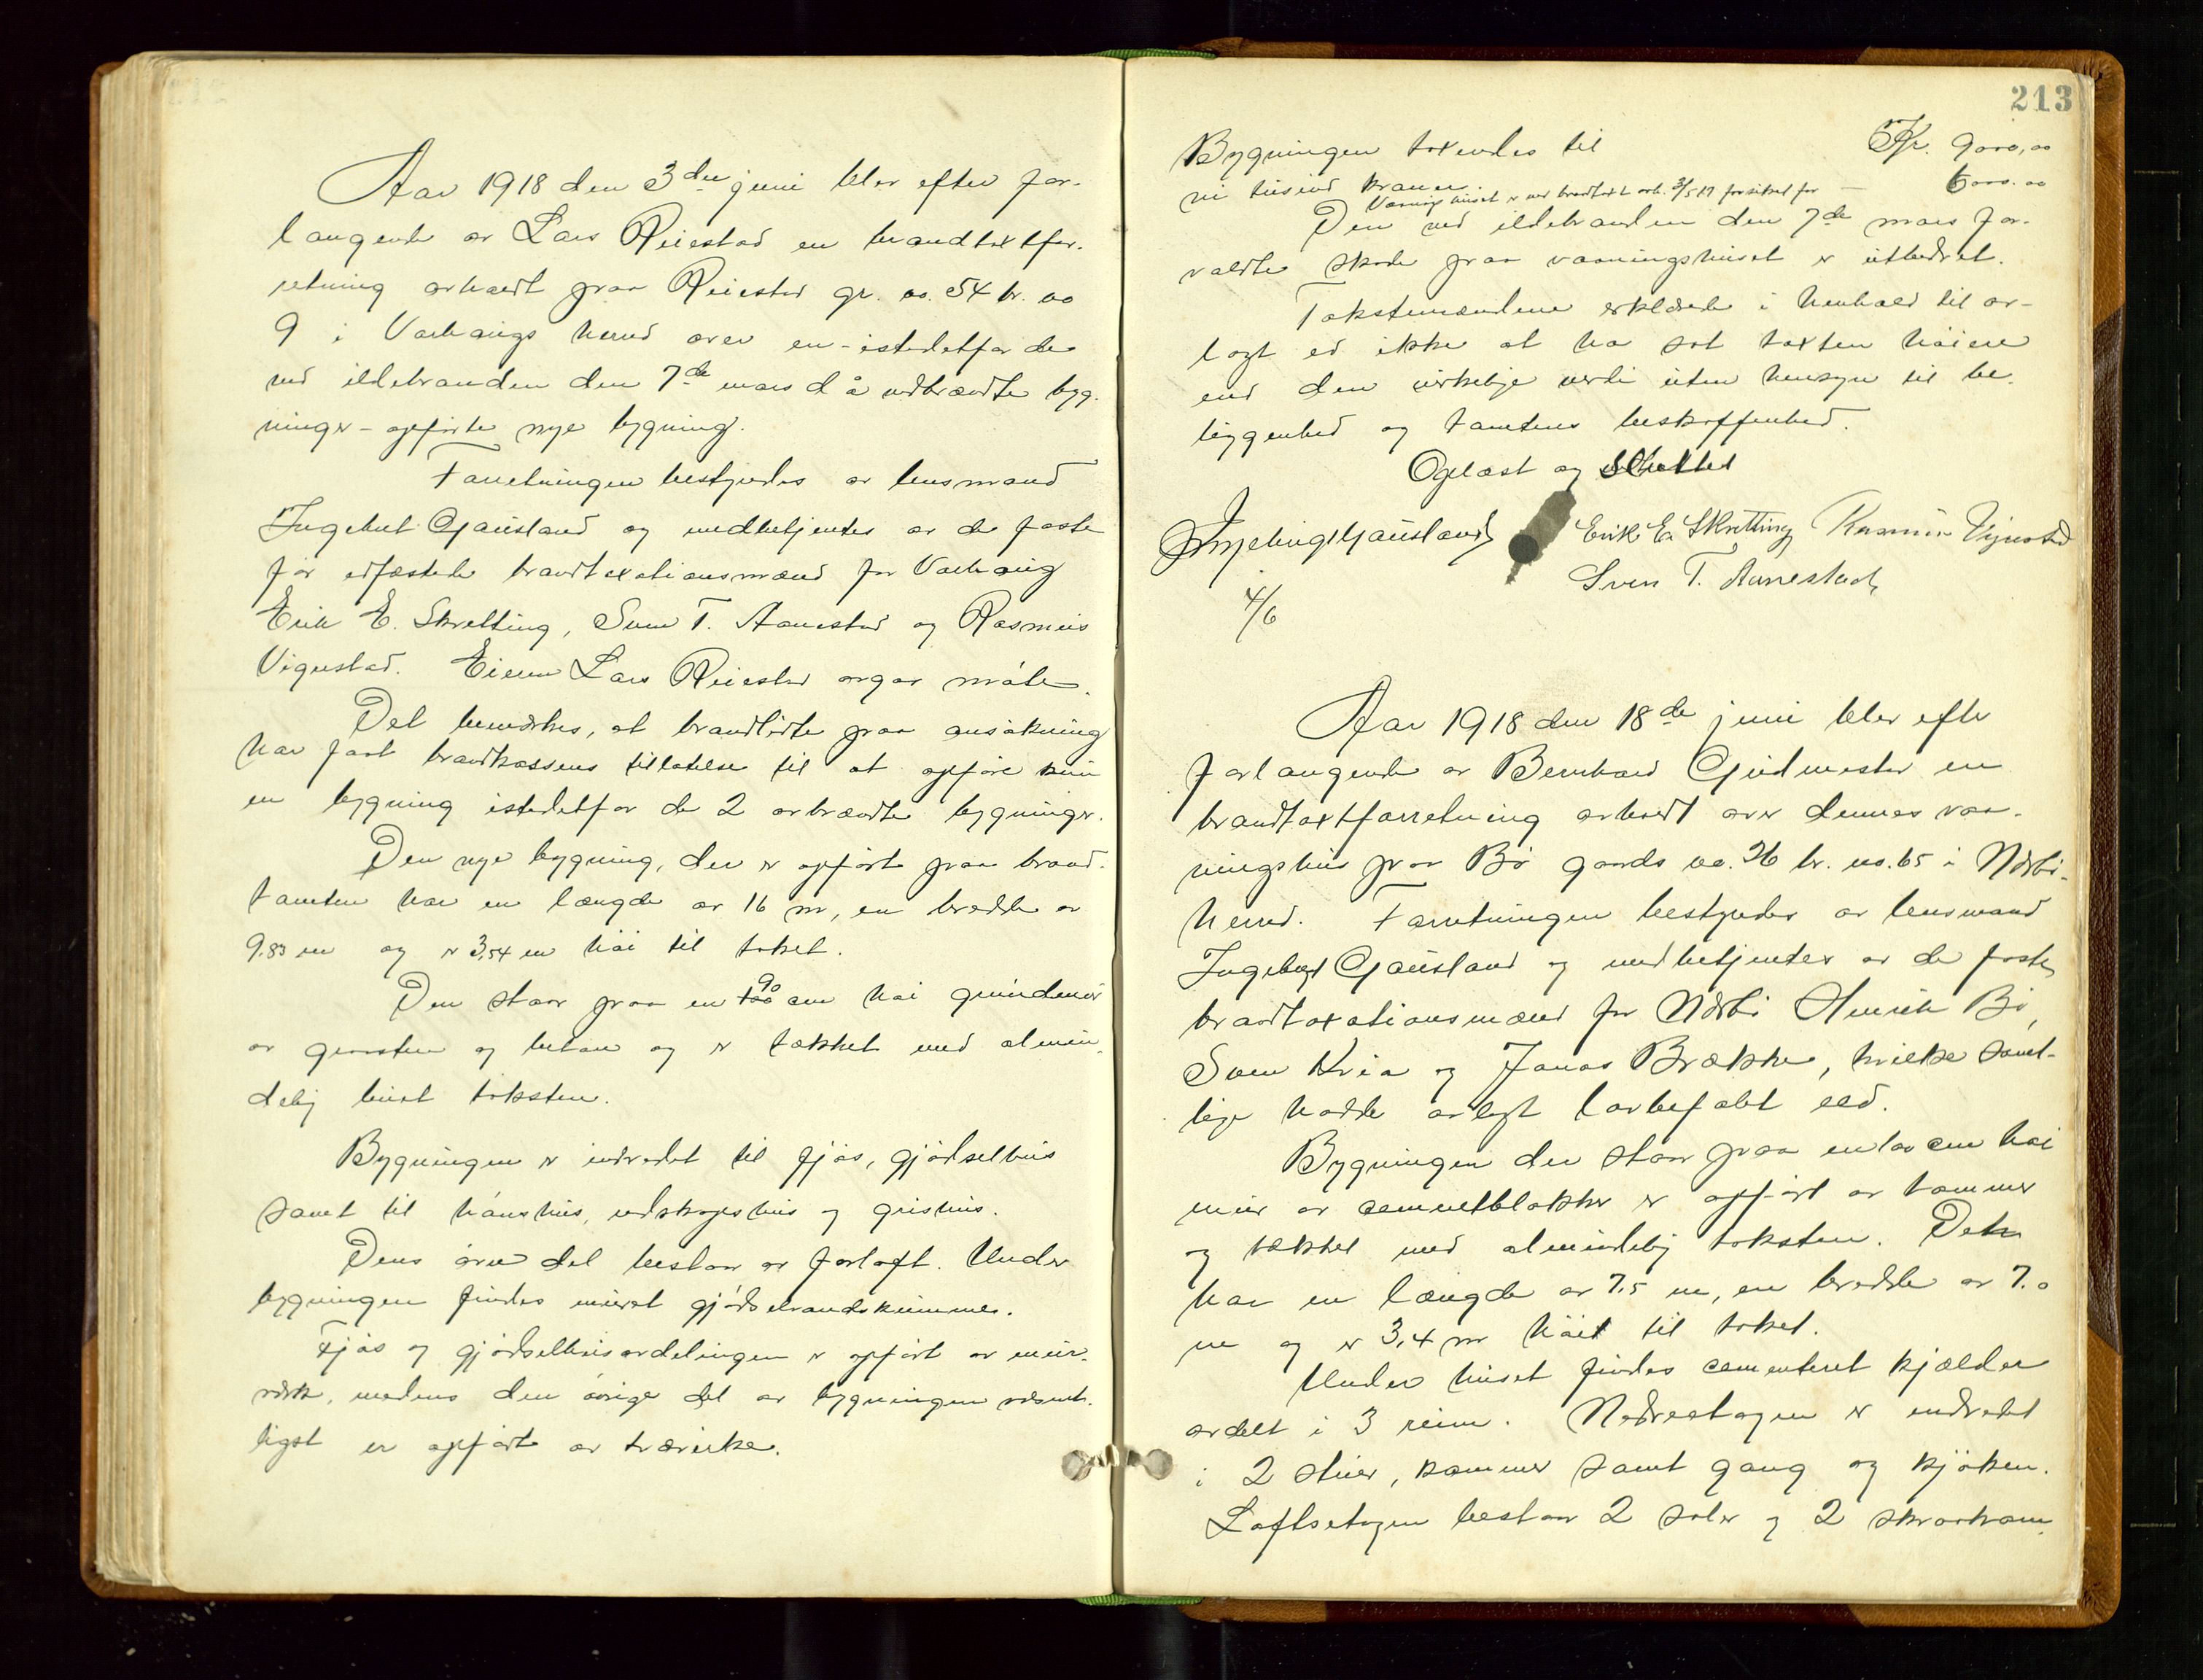 Aar 1918 den 3die juni blev efter for-
langende av Lars Reiestad en brandtaxtfor-
retning avholdt paa Reiestad gr. no. 54 br. no
9 i Varhaugs herred over en - istedetfor de
ved ildebranden den 7de mars d å nedbrændte byg-
ninger - opførte nye bygning.
Forretningen bestyredes av lensmand
Ingebret Gausland og medbetjentes av de faste
før edfæstede brandtaxationsmænd for Varhaug
Erik E. Skretting, Sven T. Aanestad og Rasmus
Vignestad. Eieren Lars Reiestad avgav møte.
Det bemærkes, at brandlidte paa ansøkning
har faat brandkassens tillatelse til at opføre kun
en bygning istedetfor de 2 avbrændte bygninger.
Den nye bygning, der er opført paa brand-
tomten har en længde av 16 m, en bredde av
9.83 m og er 3,54 m høi til taket.
Den staar paa en 90 cm høi grundmur
av graasten og betong og er tækket med almin-
delig brændt taksten.
Bygningen er indredet til fjøs, gjødselhus
samt til hønshus, redskapshus og grishus.
Dens øvre del bestaar av forloft. Under
bygningen findes muret gjødselvandskumme.
Fjøs og gjødselhusavdelingen er opført av mur-
værk, medens den øvrige del av bygningen væsent-
ligst er opført av trævirke.
213
Bygningen taxeredes til Kr. 9000,00
ni tusind kroner
Vaaningshuset er ved brandtakst avh. 3/5 17 forsikret for — 6000.00
Den ved ildebranden den 7de mars for-
voldte skade paa vaaningshuset er utbedret.
Takstmændene erklærede i henhold til av-
lagt ed ikke at ha sat taxten høiere
end den virkelige verdi uten hensyn til be-
liggenhed og tomtens beskaffenhed.
Oplæst og sluttet
Ingebrigt Gausland Erik E. Skretting Rasmus Vignestad
Sven T. Aanestad
4/6
Aar 1918 den 18de juni blev efter
forlangende av Bernhard Gudmestad en
brandtaxtforretning avholdt over dennes vaa-
ningshus paa Bø gaards no. 36 br. no. 65 i Nærbø
herred. Forretningen bestyredes av lensmand
Ingebrgt Gausland og medbetjentes av de faste
brandtaxationsmænd for Nærbø Henrik Bø,
Sven Kvia og Jonas Brække, hvilke samt-
lige hadde avlagt lovbefalt eed.
Bygningen der staar paa en 100 cm høi
mur av cementblokker er opført av tømmer
og tækket med almindelig taksten. Den
har en længde av 7.5 m, en bredde av 7.0
m og er 3,4 m høit til taket.
Under huset findes cementeret kjælder
avdelt i 3 rum. Nedreetagen er indredet
i 2 stuer, kammer samt gang og kjøken.
Loftsetagen bestaar 2 saler og 2 skraakam-